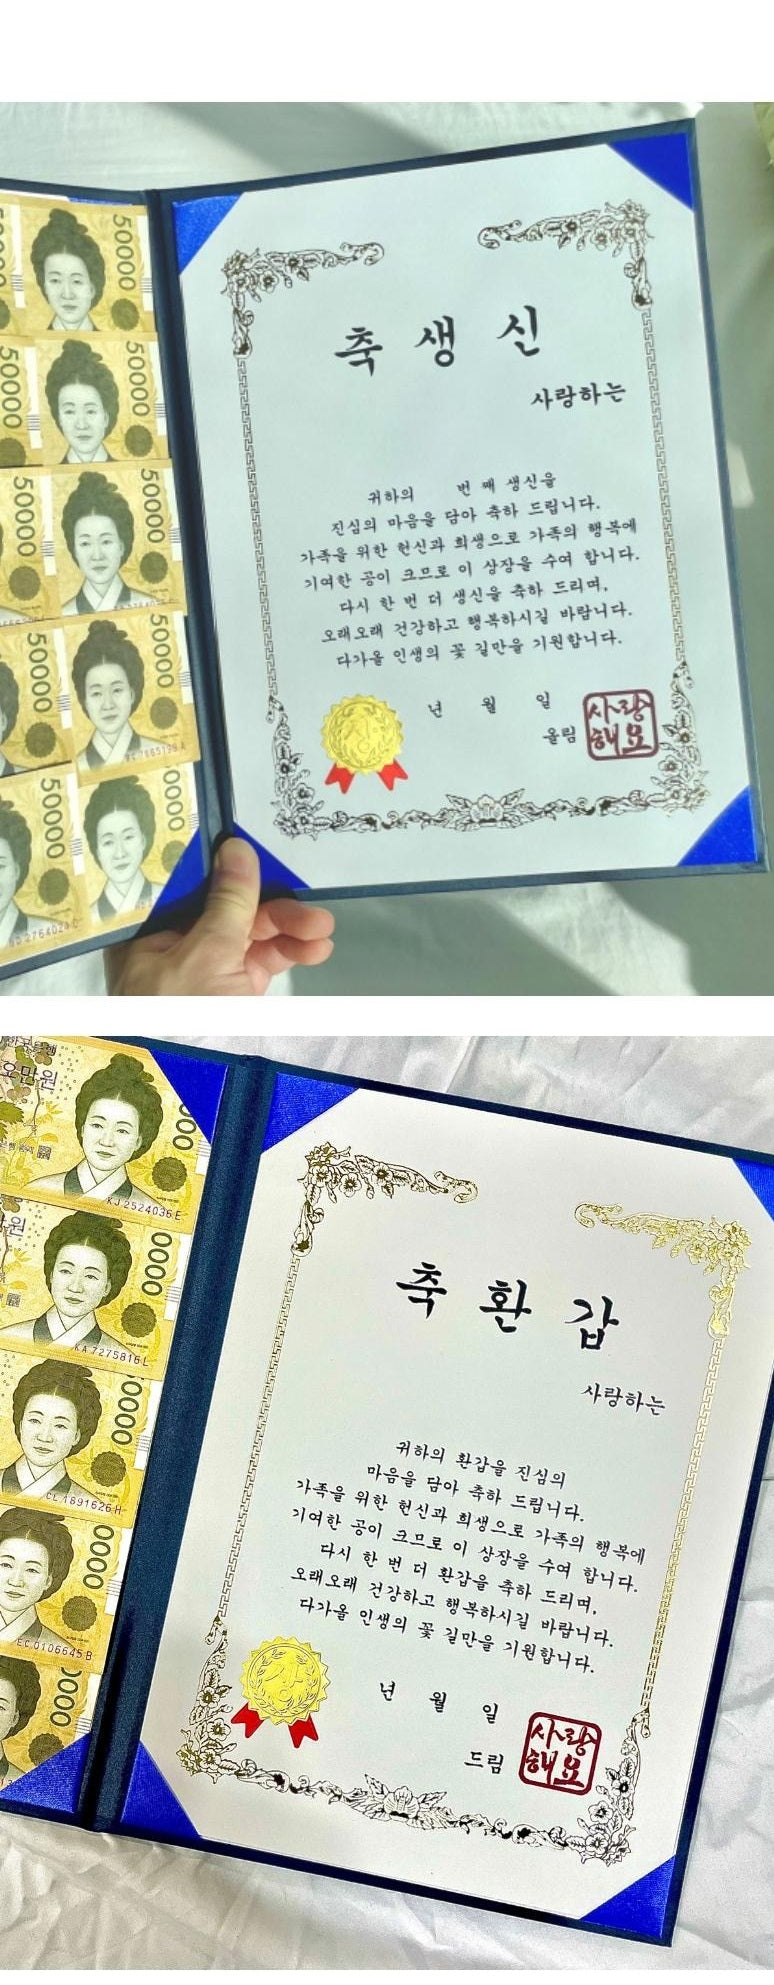 50000
50000
50000
50000
50000
0000
축 생 신
사랑하는
귀하의 번 째 생신을
진심의 마음을 담아 축하 드립니다.
가족을 위한 헌신과 희생으로 가족의 행복에
기여한 공이 크므로 이 상장을 수여 합니다.
다시 한 번 더 생신을 축하 드리며,
오래오래 건강하고 행복하시길 바랍니다.
다가올 인생의 꽃 길만을 기원합니다.
년 월 일
올림
사랑
해요
상
오만원
000
KJ 2524036 E
0000
KA 7275816 L
0000
CL 1891626 H
0000
EC 0106645 B
0000
축 환 갑
사랑하는
귀하의 환갑을 진심의
마음을 담아 축하 드립니다.
가족을 위한 헌신과 희생으로 가족의 행복에
기여한 공이 크므로 이 상장을 수여 합니다.
다시 한 번 더 환갑을 축하 드리며,
오래오래 건강하고 행복하시길 바랍니다.
다가올 인생의 꽃 길만을 기원합니다.
년 월 일
드림
사랑
해요
상